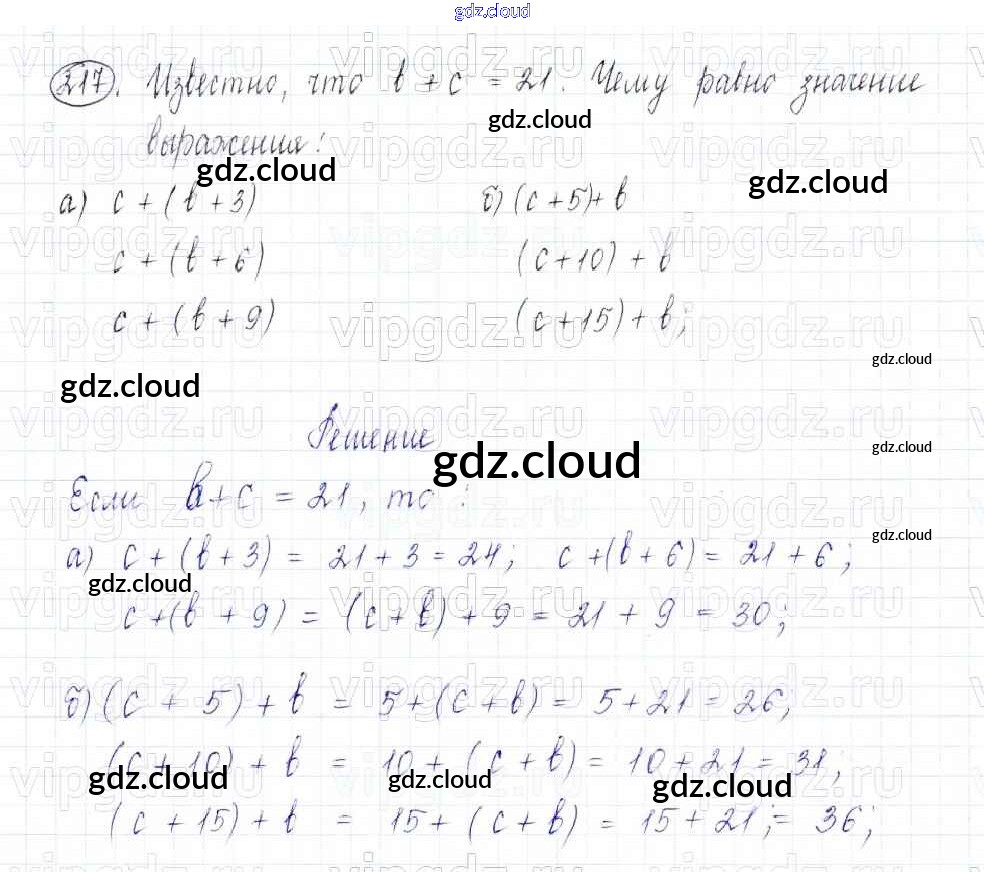 gdz.cloud
217. Известно, что b + c = 21. Чему равно значение
gdz.cloud
выражения:
gdz.cloud
gdz.cloud
а) c + (b + 3) б) (c + 5) + b
c + (b + 6) (c + 10) + b
c + (b + 9) (c + 15) + b;
gdz.cloud
gdz.cloud
Решение
gdz.cloud
gdz.cloud
Если b + c = 21, то :
gdz.cloud
а) c + (b + 3) = 21 + 3 = 24; c + (b + 6) = 21 + 6;
gdz.cloud
c + (b + 9) = (c + b) + 9 = 21 + 9 = 30;
б) (c + 5) + b = 5 + (c + b) = 5 + 21 = 26;
(c + 10) + b = 10 + (c + b) = 10 + 21 = 31;
gdz.cloud gdz.cloud gdz.cloud
(c + 15) + b = 15 + (c + b) = 15 + 21; = 36;
vipgdz.ru